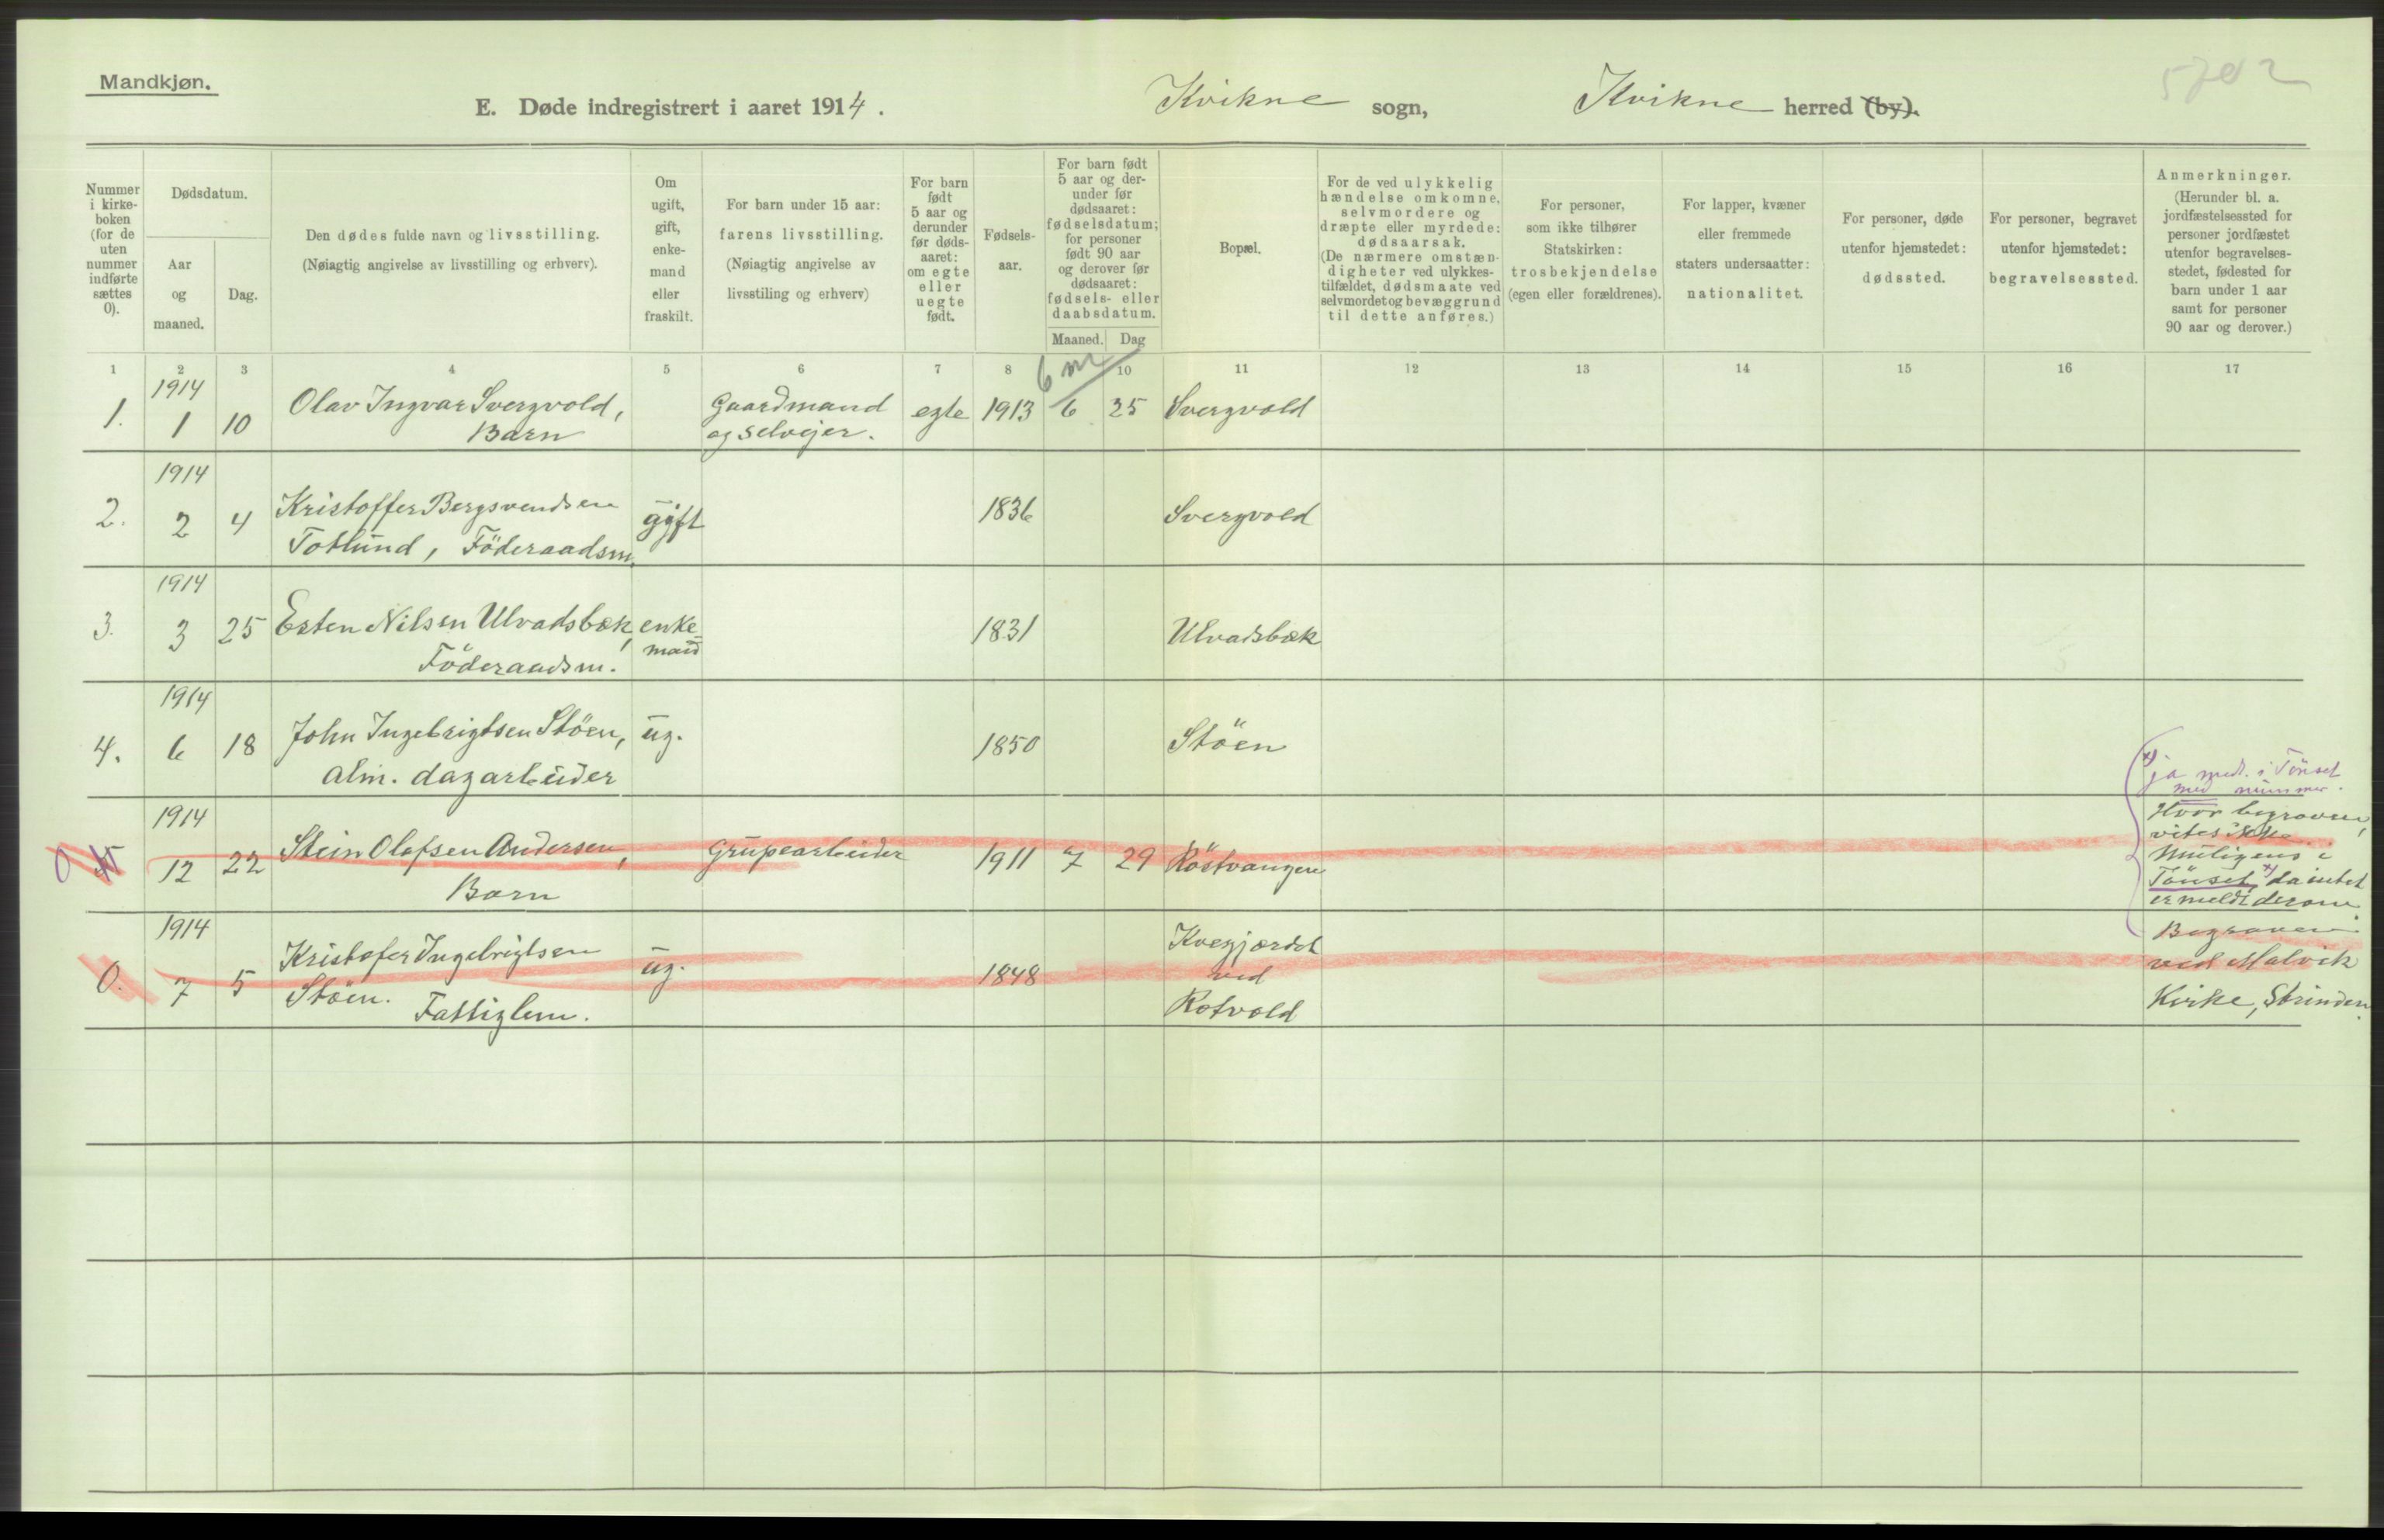 Mandkjøn.
5702
E. Døde indregistrert i aaret 1914. Kvikne sogn, Kvikne herred (by).
Nummer i kirke- boken (for de uten nummer indførte sættes 0).
Dødsdatum.
Aar og maaned.
Dag.
Den dødes fulde navn og livsstilling.
(Nøiagtig angivelse av livsstilling og erhverv).
Om ugift, gift, enke- mand eller fraskilt.
For barn under 15 aar: farens livsstilling.
(Nøiagtig angivelse av livsstiling og erhverv)
For barn født 5 aar og derunder før døds- aaret: om egte eller uegte født.
Fødsels- aar.
For barn født 5 aar og der- under før dødsaaret: fødselsdatum; for personer født 90 aar og derover før dødsaaret: fødsels- eller daabsdatum.
Maaned. Dag
Bopæl.
For de ved ulykkelig hændelse omkomne, selvmordere og dræpte eller myrdede: dødsaarsak.
(De nærmere omstæn- digheter ved ulykkes- tilfældet, dødsmaate ved selvmordet og bevæggrund til dette anføres.)
For personer, som ikke tilhører Statskirken: trosbekjendelse (egen eller forældrenes).
For lapper, kvæner eller fremmede staters undersaatter: nationalitet.
For personer, døde utenfor hjemstedet: dødssted.
For personer, begravet utenfor hjemstedet: begravelsessted.
Anmerkninger.
(Herunder bl. a. jordfæstelsessted for personer jordfæstet utenfor begravelses- stedet, fødested for barn under 1 aar samt for personer 90 aar og derover.)
1 2 3 4 5 6 7 8 10 11 12 13 14 15 16 17
6 m
1914
1. 1 10 Olav Ingvar Svergvold, Gaardmand egte 1913 6 25 Svergvold
Barn og selvejer.
1914
2. 2 4 Kristoffer Bergsvendsen gift 1836 Svergvold
Totlund, Föderaadsm.
1914
3. 3 25 Esten Nilsen Ulvadsbæk, enke- 1831 Ulvadsbæk
Föderaadsm. mand
1914
4. 6 18 John Ingebrigtsen Stöen, ug. 1850 Stöen
alm. dagarbeider
x) ja medt. i Tönset
med nummer.
1914
0 12 22 Stein Olafsen Andersen, Grubearbeider 1911 7 29 Röstvangen
Barn
Hvor begraven,
vites ikke.
Muligens i
Tönset, x) da intet
er meldt derom.
1914
0. 7 5 Kristofer Ingebrigtsen ug. 1848 Kvegjordet
Stöen. Fattiglem. ved
Rotvold
Begraven
ved Malvik
Kirke, Strinden.